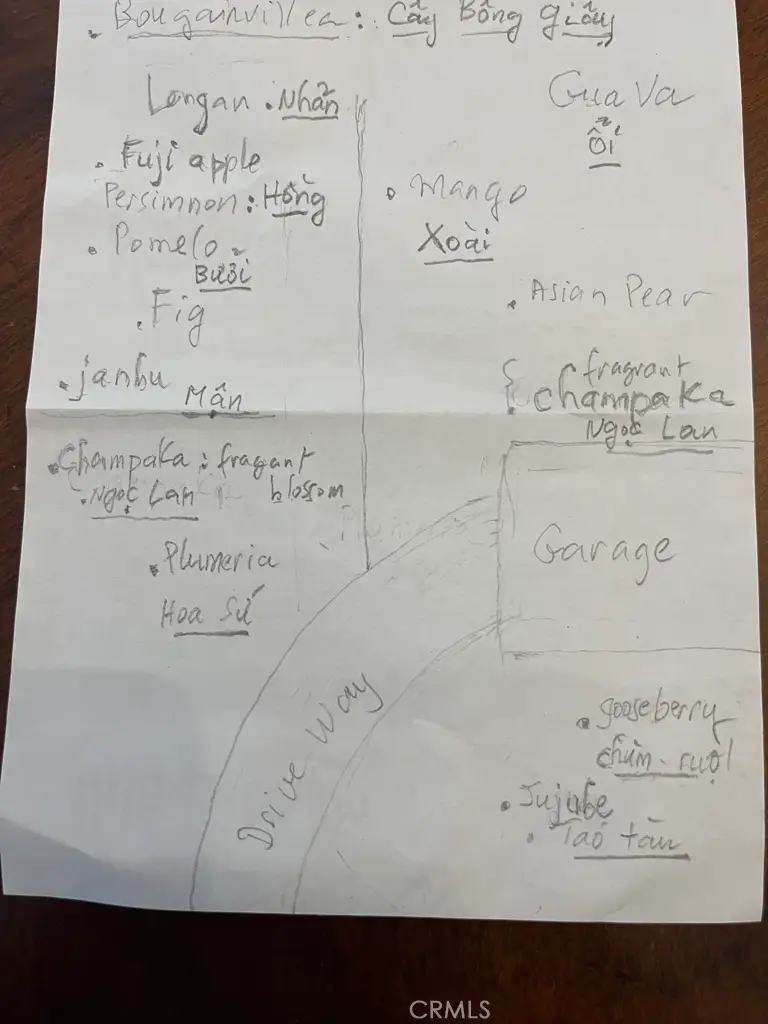 . Bougainvillea: Cây Bông giấy
Longan . Nhãn
. Fuji apple
Persimnon: Hồng
. Pomelo
Bưởi
. Fig
. janbu
Mận
. Champaka : fragant
. Ngọc Lan blossom
. Plumeria
Hoa Sứ
Guava
Ổi
. Mango
Xoài
. Asian Pear
fragrant
Champaka
Ngọc Lan
Garage
Drive Way
. gooseberry
chùm. ruột
. Jujube
. Táo tàu
CRMLS